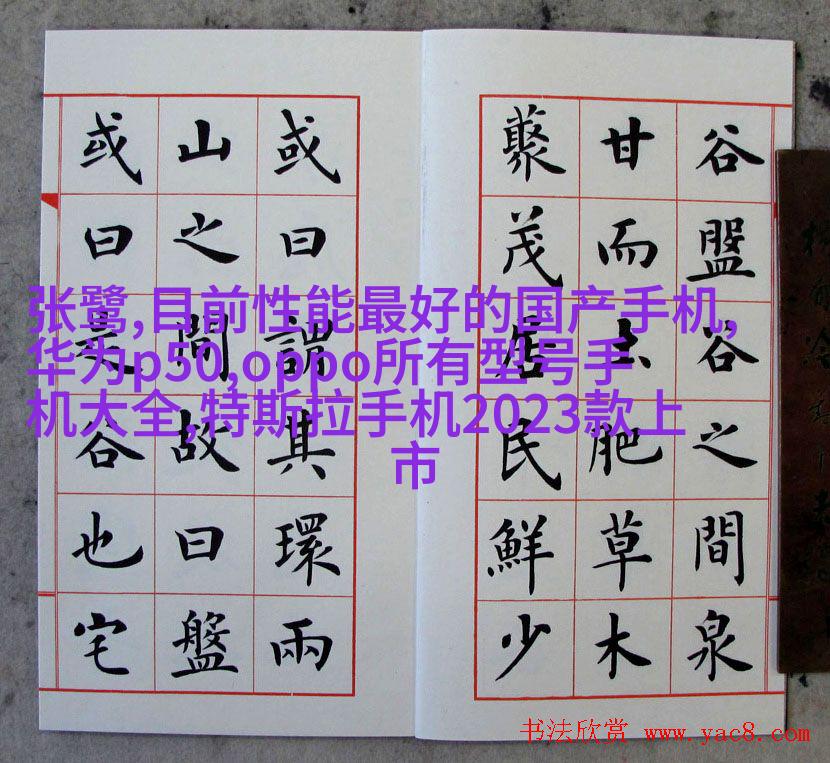 谷盤谷之間泉
甘而土肥草木
藂茂居民鮮少
或曰謂其環兩
山之間故曰盤
或曰是谷也宅
张鹭,目前性能最好的国产手机,
华为p50,oppo所有型号手
机大全,特斯拉手机2023款上
市
书法欣赏 www.yac8.com